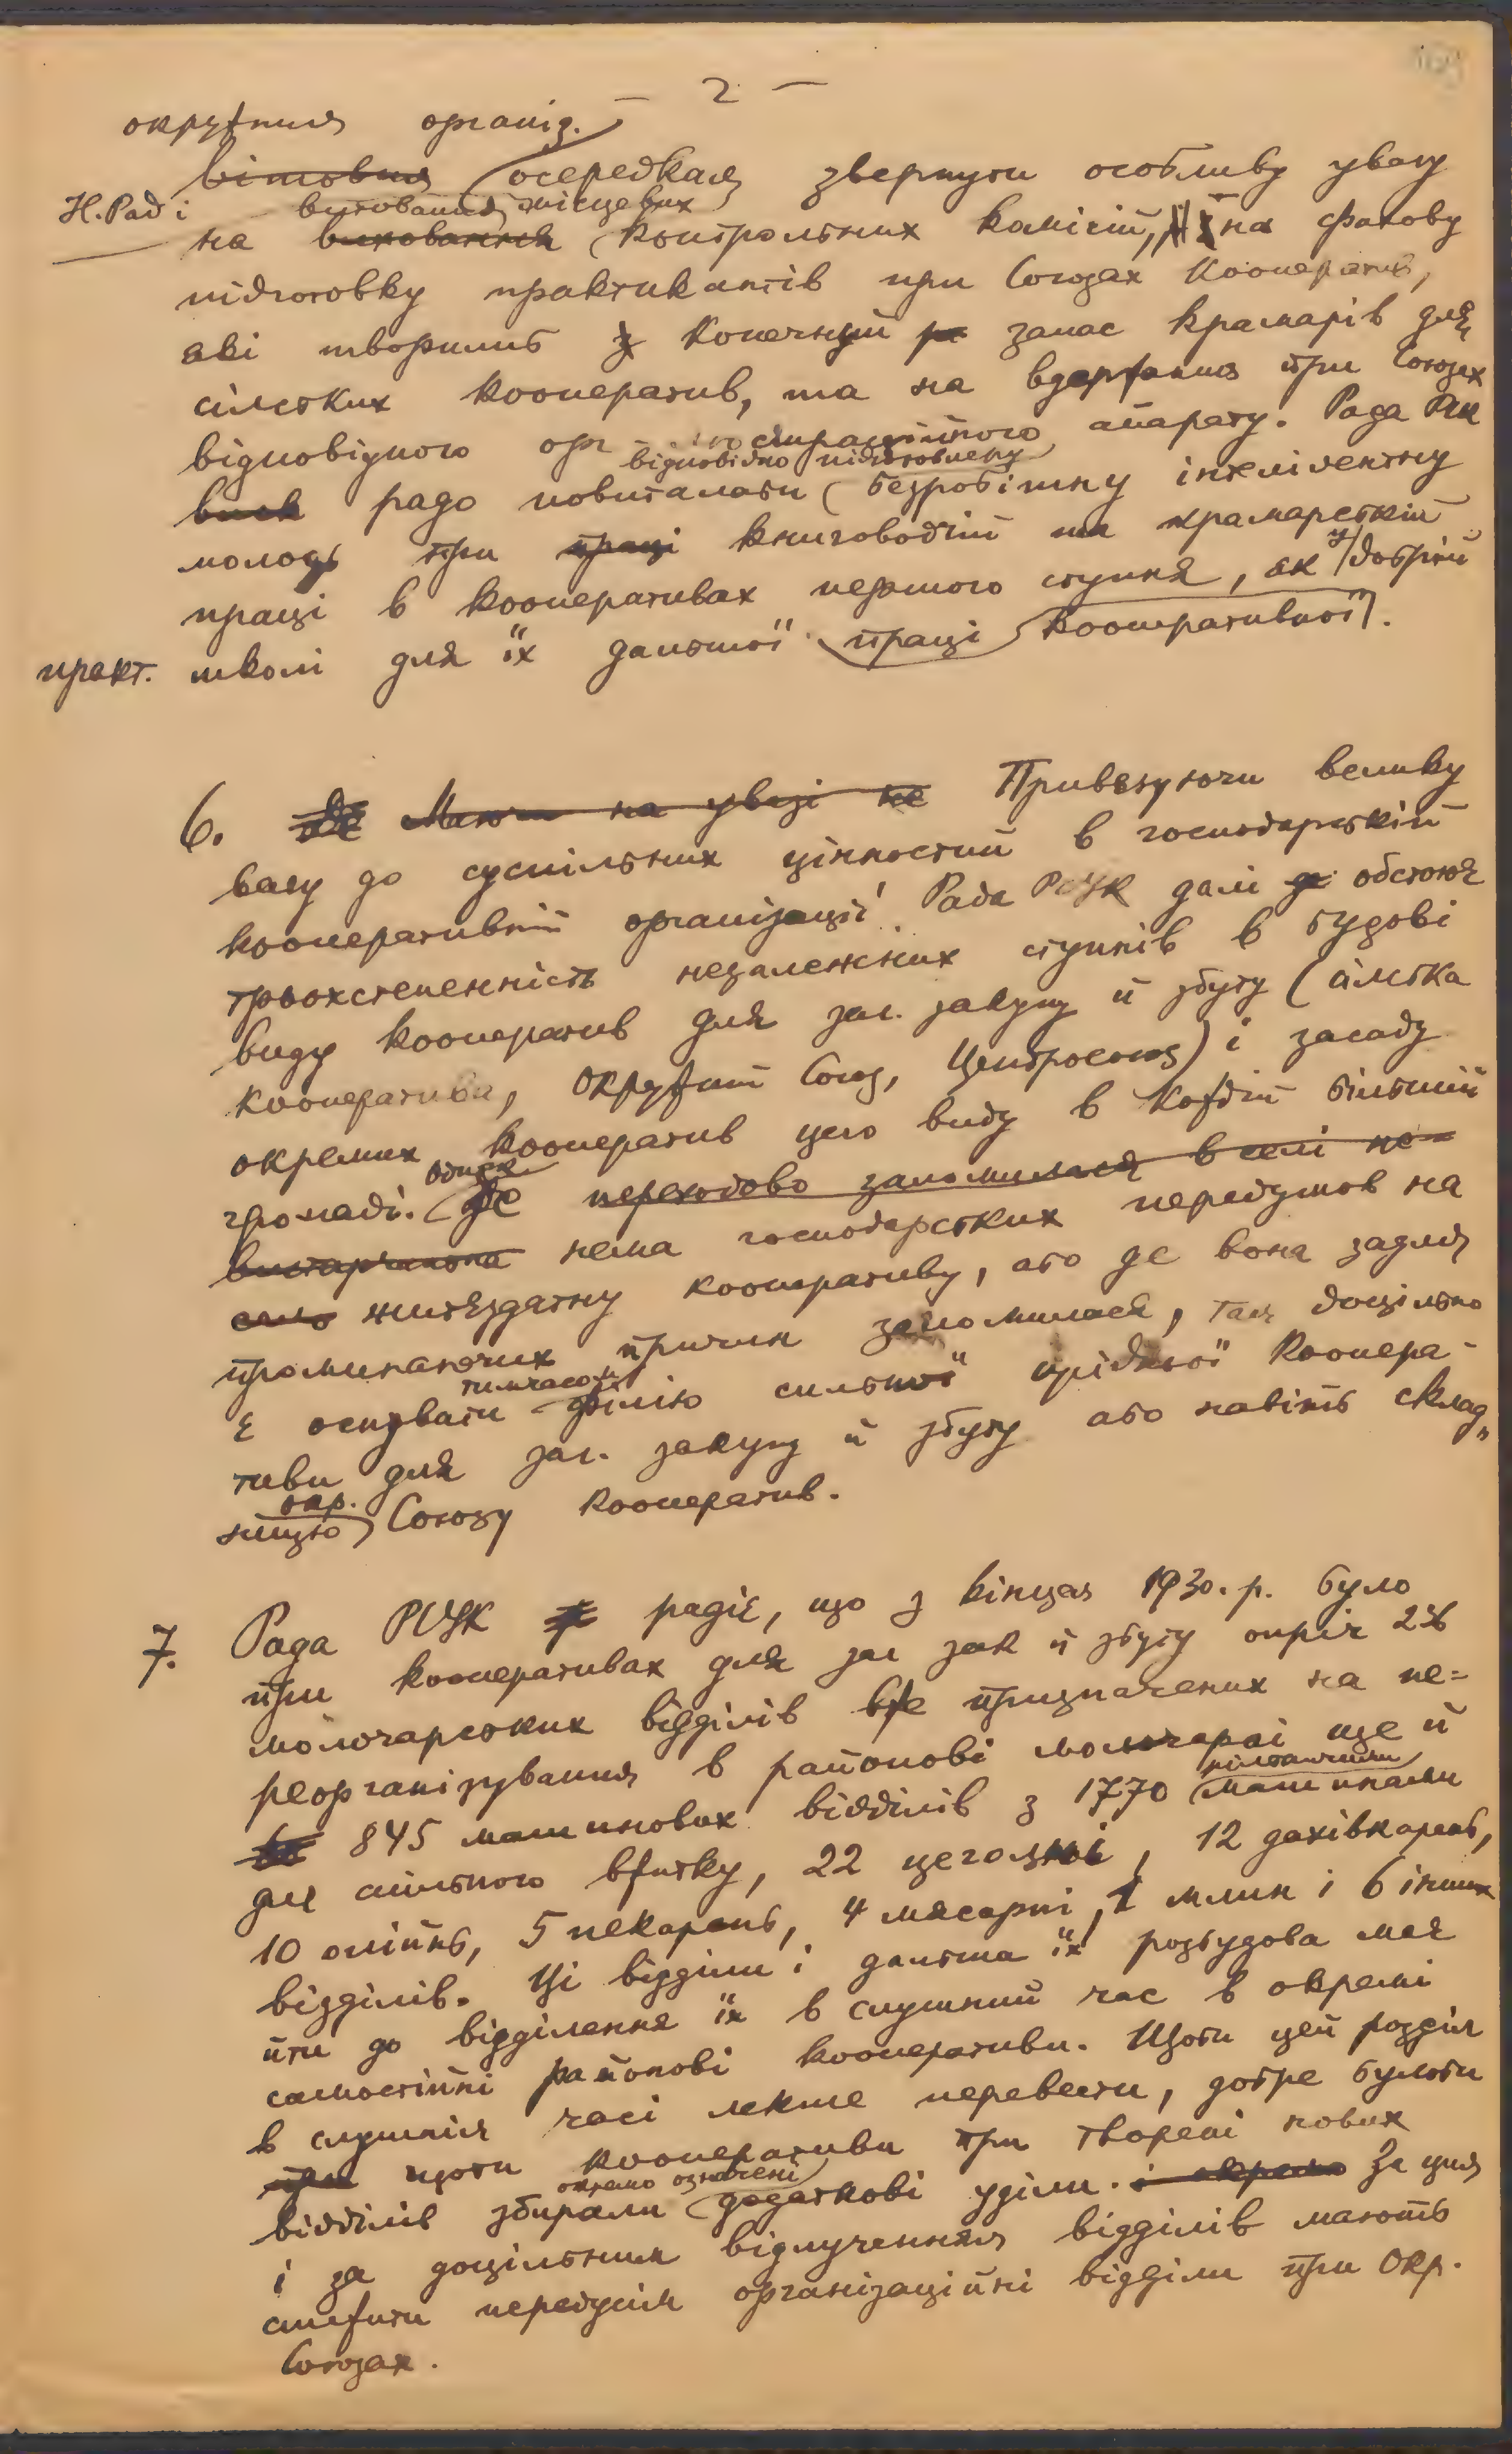 – 2 –
окружним організ.
вітовим осередкам звернути особливу увагу
Н. Раді
вишованню місцевих
на виховання контрольних комісій, і на фахову
підготовку практикантів при Союзах Кооператив,
які творилиб конечний запас крамарів для
сільських кооператив, та на вдержання при Союзах
відповідного орг страційного апарату. Рада РСУК
відповідно підготовлену
радо повиталаби безробітну інтелігентну
молодь при праці книговодчій та крамарській
праці в кооперативах першого ступня, як у добрій
практ. школі для їх дальшої праці кооперативної.
6. Маючи на увазі не Привязуючи велику
вагу до суспільних цінностий в господарській
кооперативній організації Рада РСУК далі обстоює
трьохстепенність незалежних ступнів в будові
виду кооператив для заг. закупу й збуту (сільська
кооператива, Окружний Союз, Центросоюз) і засаду
окремих кооператив цего виду в кождій більшій
однак
громаді. Де переходово заломилася в селі не
вистарчаюча нема господарських передумов на
село життєздатну кооперативу, або де вона задля
проминаючих причин заломилася, там доцільно
тимчасово
є оснувати філію сильної сусідньої Коопера-
тиви для заг. закупу й збуту або навіть склад„
окр.
ницю Союзу Кооператив.
7. Рада РСУК радіє, що з кінцем 1930. р. було
при кооперативах для заг зак й збуту опріч 236
молочарських відділів вже призначених на пе=
реорганізування в районові молочарні ще й
рільничими
845 машинових відділів з 1770 машинами
для спільного вжитку, 22 цегольні, 12 дахівкарень,
10 олійнь, 5 пекарень, 4 мясарні, 1 млин і 6 інших
відділів. Ці відділи і дальша їх розбудова має
йти до відділення їх в слушний час в окремі
самостійні районові кооперативи. Щоби цей розділ
в слушнім часі лекше перевести, добре булоби
при щоби кооперативи при творені нових
окремо означені
відділів збирали додаткові уділи. і окремо За цим
і за доцільним відлученням відділів мають
стежити передусім організаційні відділи при Окр.
Союзах.